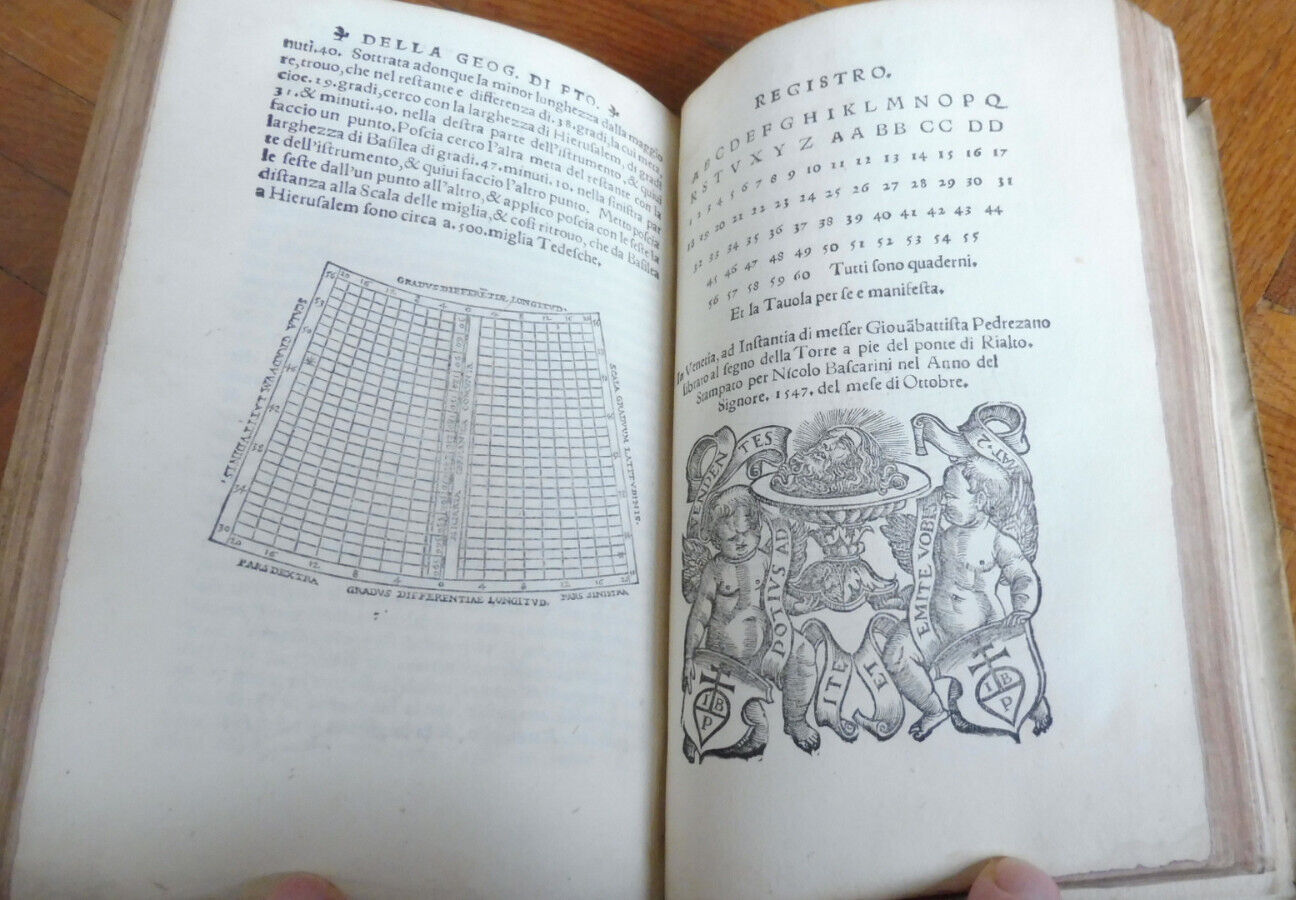 DELLA GEOG. DI PTO.
nuti.40. Sottrata adonque la minor lunghezza dalla maggio
re,trouo,che nel restante e differenza di.38.gradi,la cui meta,
cioe.19.gradi,cerco con la larghezza di Hierusalem, di gradi
31.& minuti.40. nella destra parte dell'istrumento, & quiui
faccio un punto. Poscia cerco l'altra meta del restante con la
larghezza di Basilea di gradi.47.minuti.10. nella sinistra par
te dell'istrumento, & quiui faccio l'altro punto. Metto poscia
le seste dall'un punto all'altro, & applico poscia con le seste la
distanza alla Scala delle miglia, & cosi ritrouo, che da Basilea
a Hierusalem sono circa a.500.miglia Tedesche.
GRADVS DIFFERETIÆ LONGITVD.
SCALA GRADVVM LATITVDINIS.
SCALA GRADVVM LATITVDINIS.
PARS DEXTRA
GRADVS DIFFERENTIAE LONGITVD.
PARS SINISTRA
REGISTRO.
A B C D E F G H I K L M N O P Q
R S T V X Y Z AA BB CC DD
1 2 3 4 5 6 7 8 9 10 11 12 13 14 15 16 17
18 19 20 21 22 23 24 25 26 27 28 29 30 31
32 33 34 35 36 37 38 39 40 41 42 43 44
45 46 47 48 49 50 51 52 53 54 55
56 57 58 59 60 Tutti sono quaderni.
Et la Tauola per se e manifesta.
In Venetia, ad Instantia di messer Giouābattista Pedrezano
libraro al segno della Torre a pie del ponte di Rialto.
Stampato per Nicolo Bascarini nel Anno del
Signore. 1547. del mese di Ottobre.
VENDENTES
MAT.2
POTIUS AD
EMITE VOBI
ITE ET
IBP
IBP